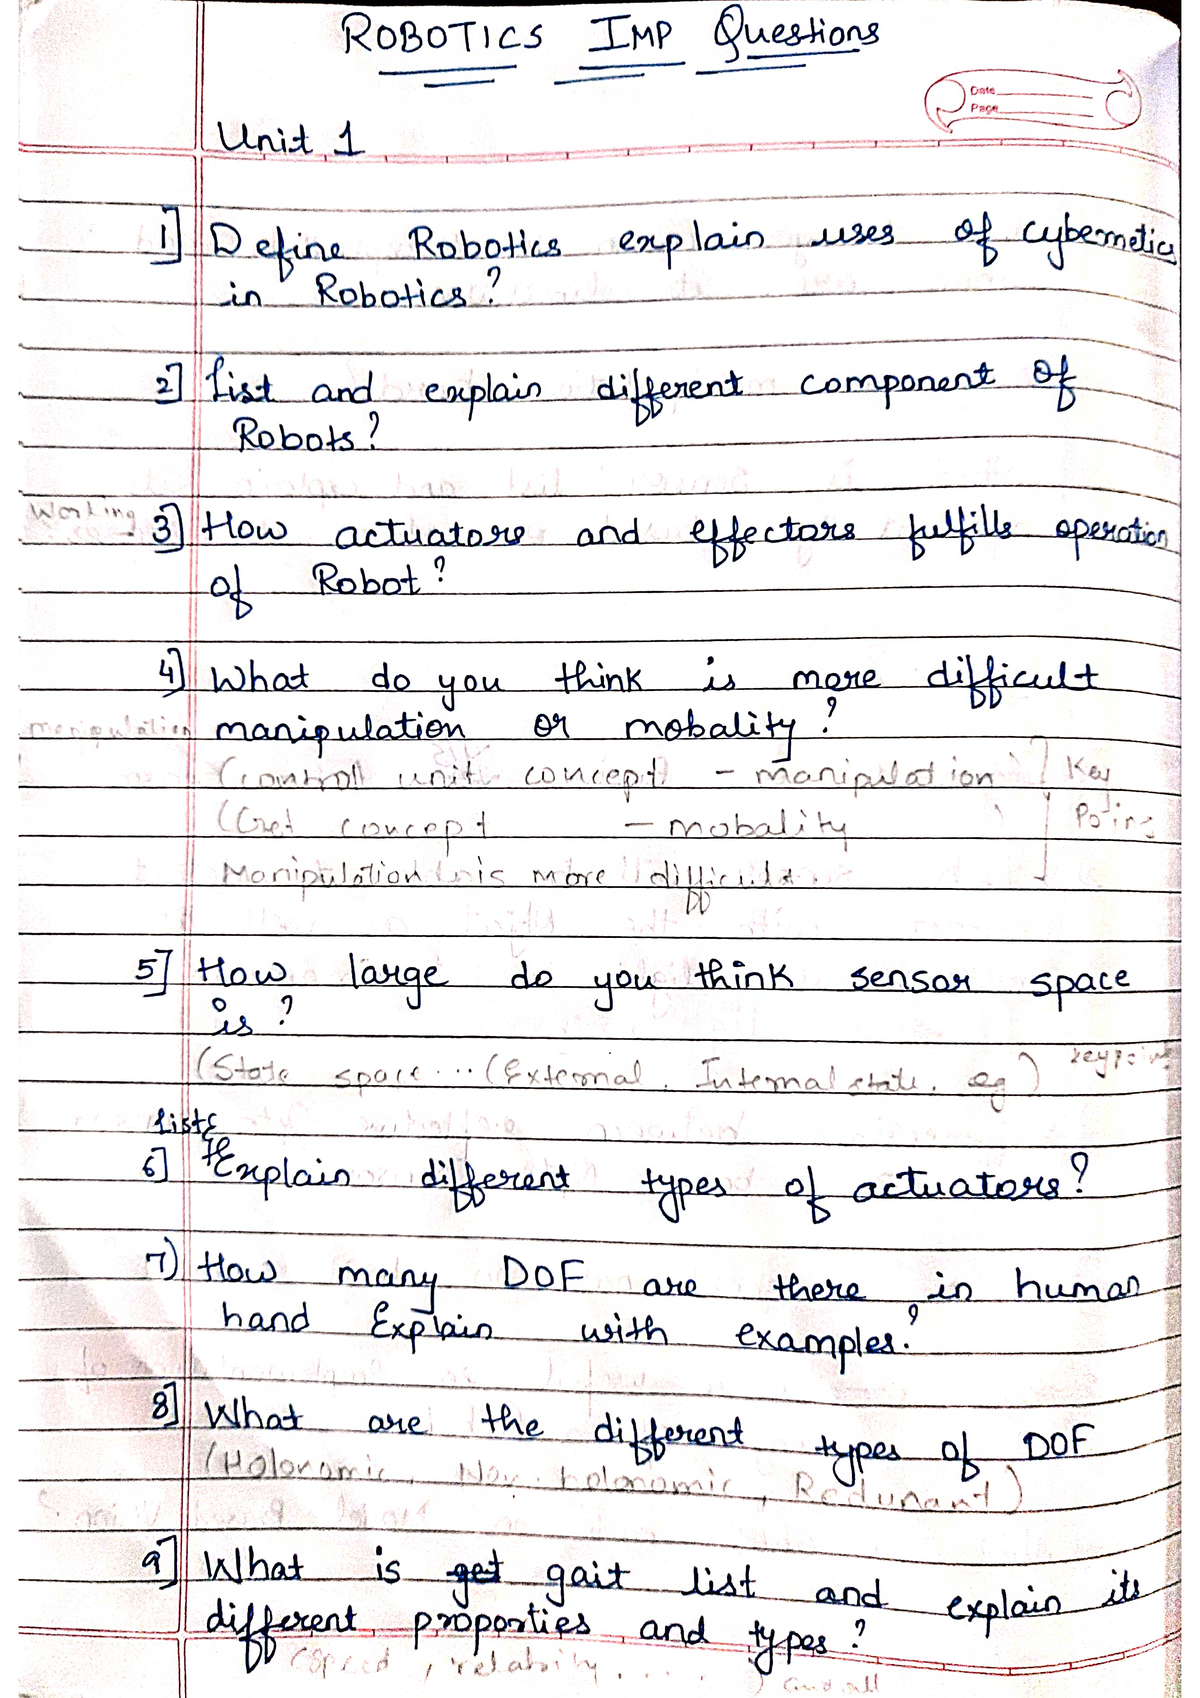 ROBOTICS IMP Questions
Date
Page
Unit 1
1] Define Robotics explain uses of cybernetics
in Robotics?
2] List and explain different component of
Robots?
Working
3] How actuators and effectors fulfills operation
of Robot?
4] What do you think is more difficult
manipulation manipulation or mobality?
(Controll unit concept - manipulation Key
concept - mobality Point
Manipulation is more difficult.
5] How large do you think sensor space
is?
(State space... (External, Internal state, eg) keypoint
List &
6] Explain different types of actuators?
7) How many DOF are there in human
hand Explain with examples.?
8] What are the different types of DOF
(Holonomic, Non-holonomic, Redunant)
9] What is get gait list and explain its
different properties and types?
(Speed,
and all